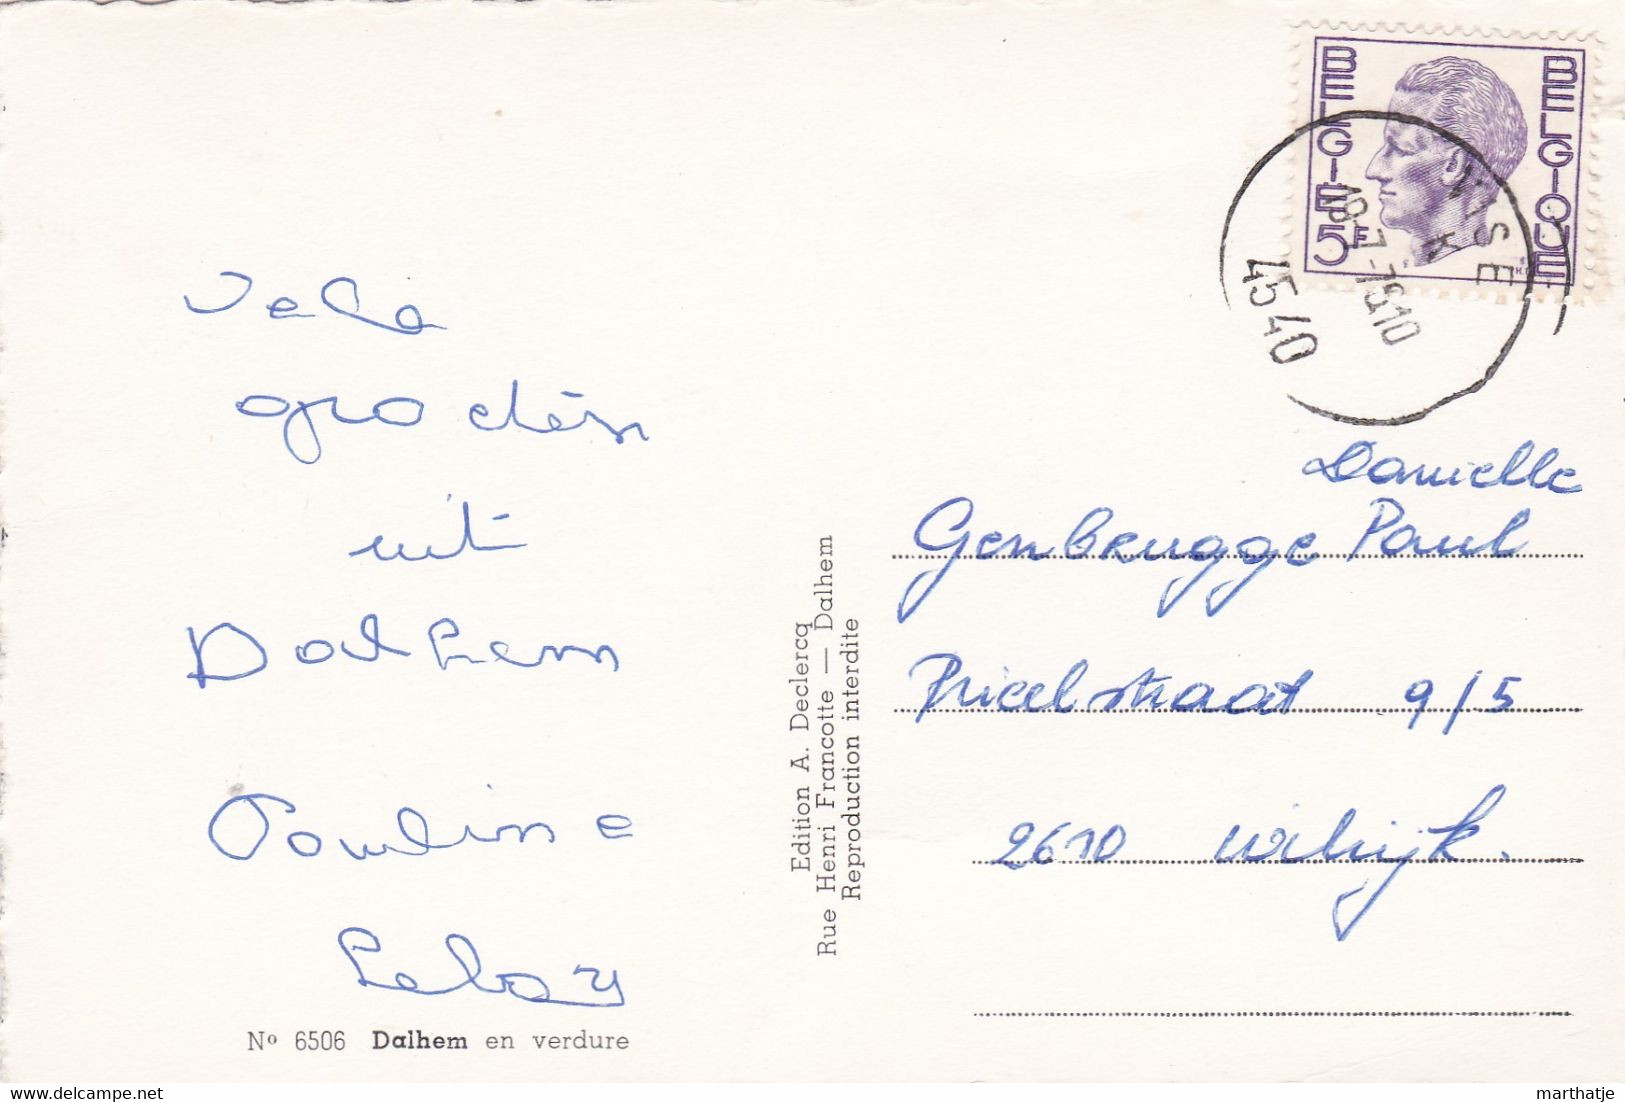 Vele
groeten
uit
Dalhem
Pauline
Nº 6506 Dalhem en verdure
Edition A. Declercq
Rue Henri Francotte — Dalhem
Reproduction interdite
BELGIE
BELGIQUE
5F
VISE
K
18-7-75 10
4540
Danielle
Genbrugge Paul
Pricelstraat 9/5
2610 Wilrijk.
marthatje